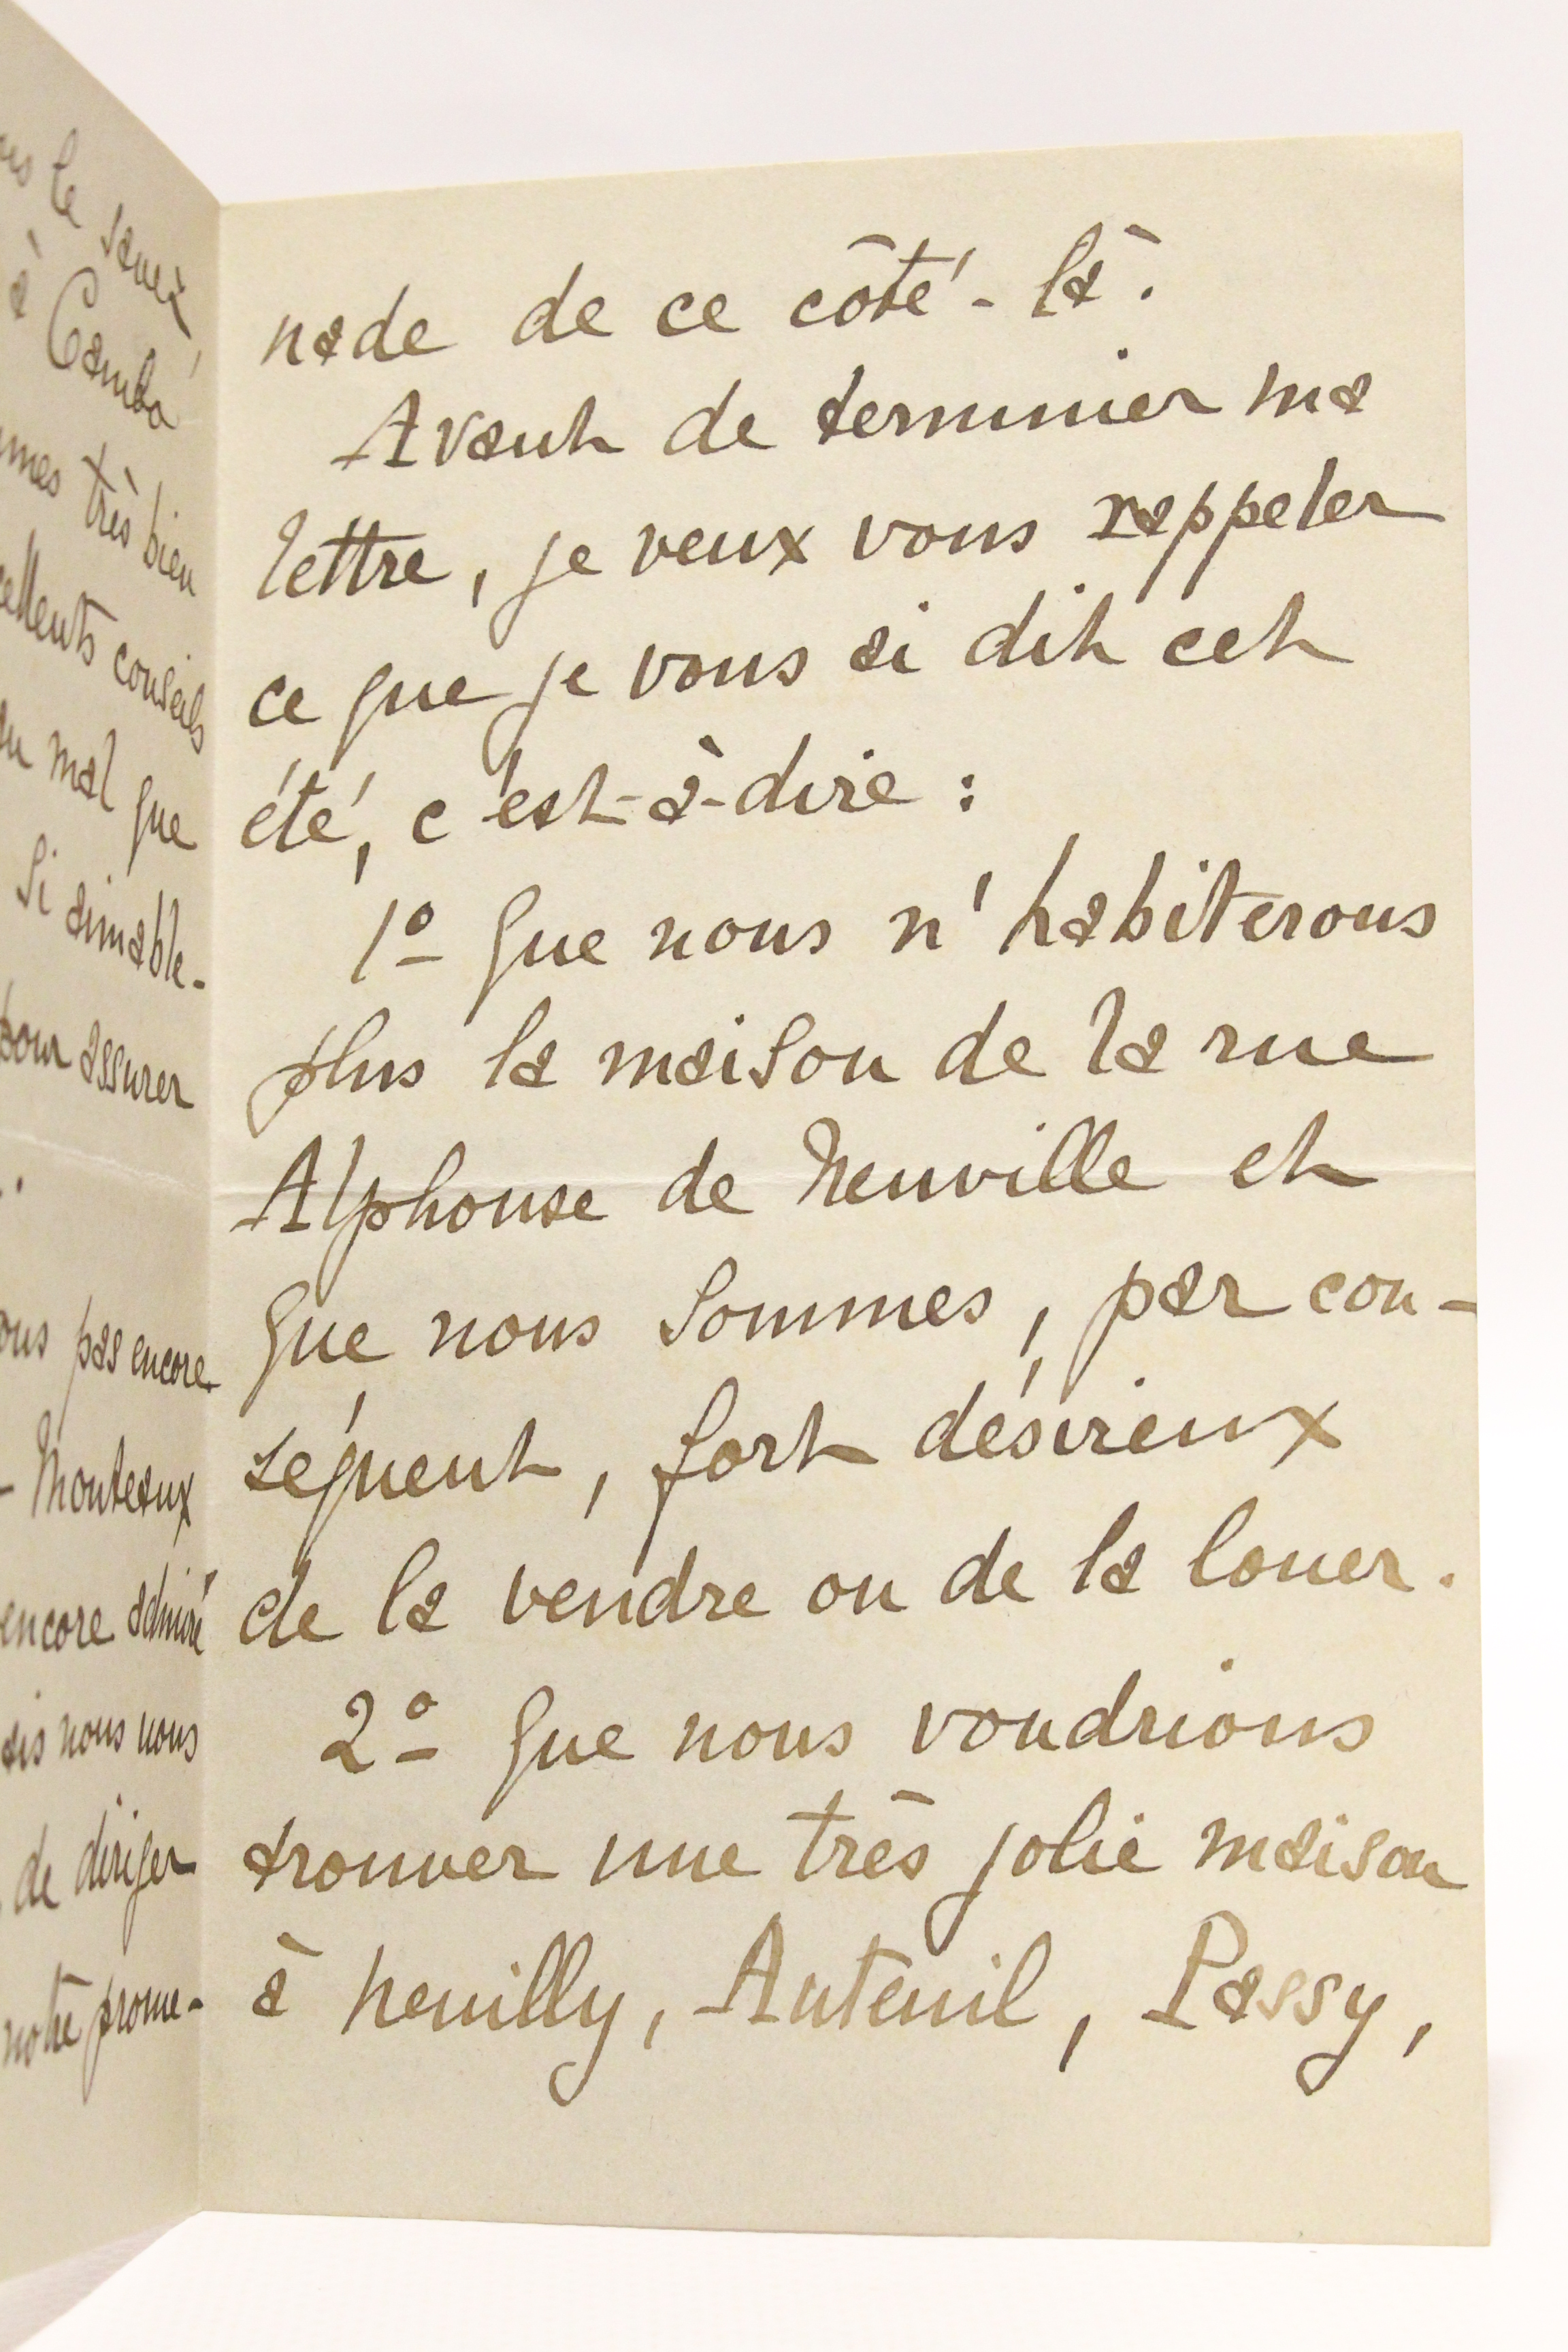 le
à Cambo
très bien
conseils
mal que
Si aimable-
pour assurer
pas encore
Monteaux
encore admiré
nous nous
de diriger
notre prome-
nade de ce côté-là.
Avant de terminer ma
lettre, je veux vous rappeler
ce que je vous ai dit cet
été, c'est-à-dire :
1º Que nous n'habiterons
plus la maison de la rue
Alphonse de Neuville et
que nous sommes, par con-
séquent, fort désireux
de la vendre ou de la louer.
2º Que nous voudrions
trouver une très jolie maison
à Neuilly, Auteuil, Passy,